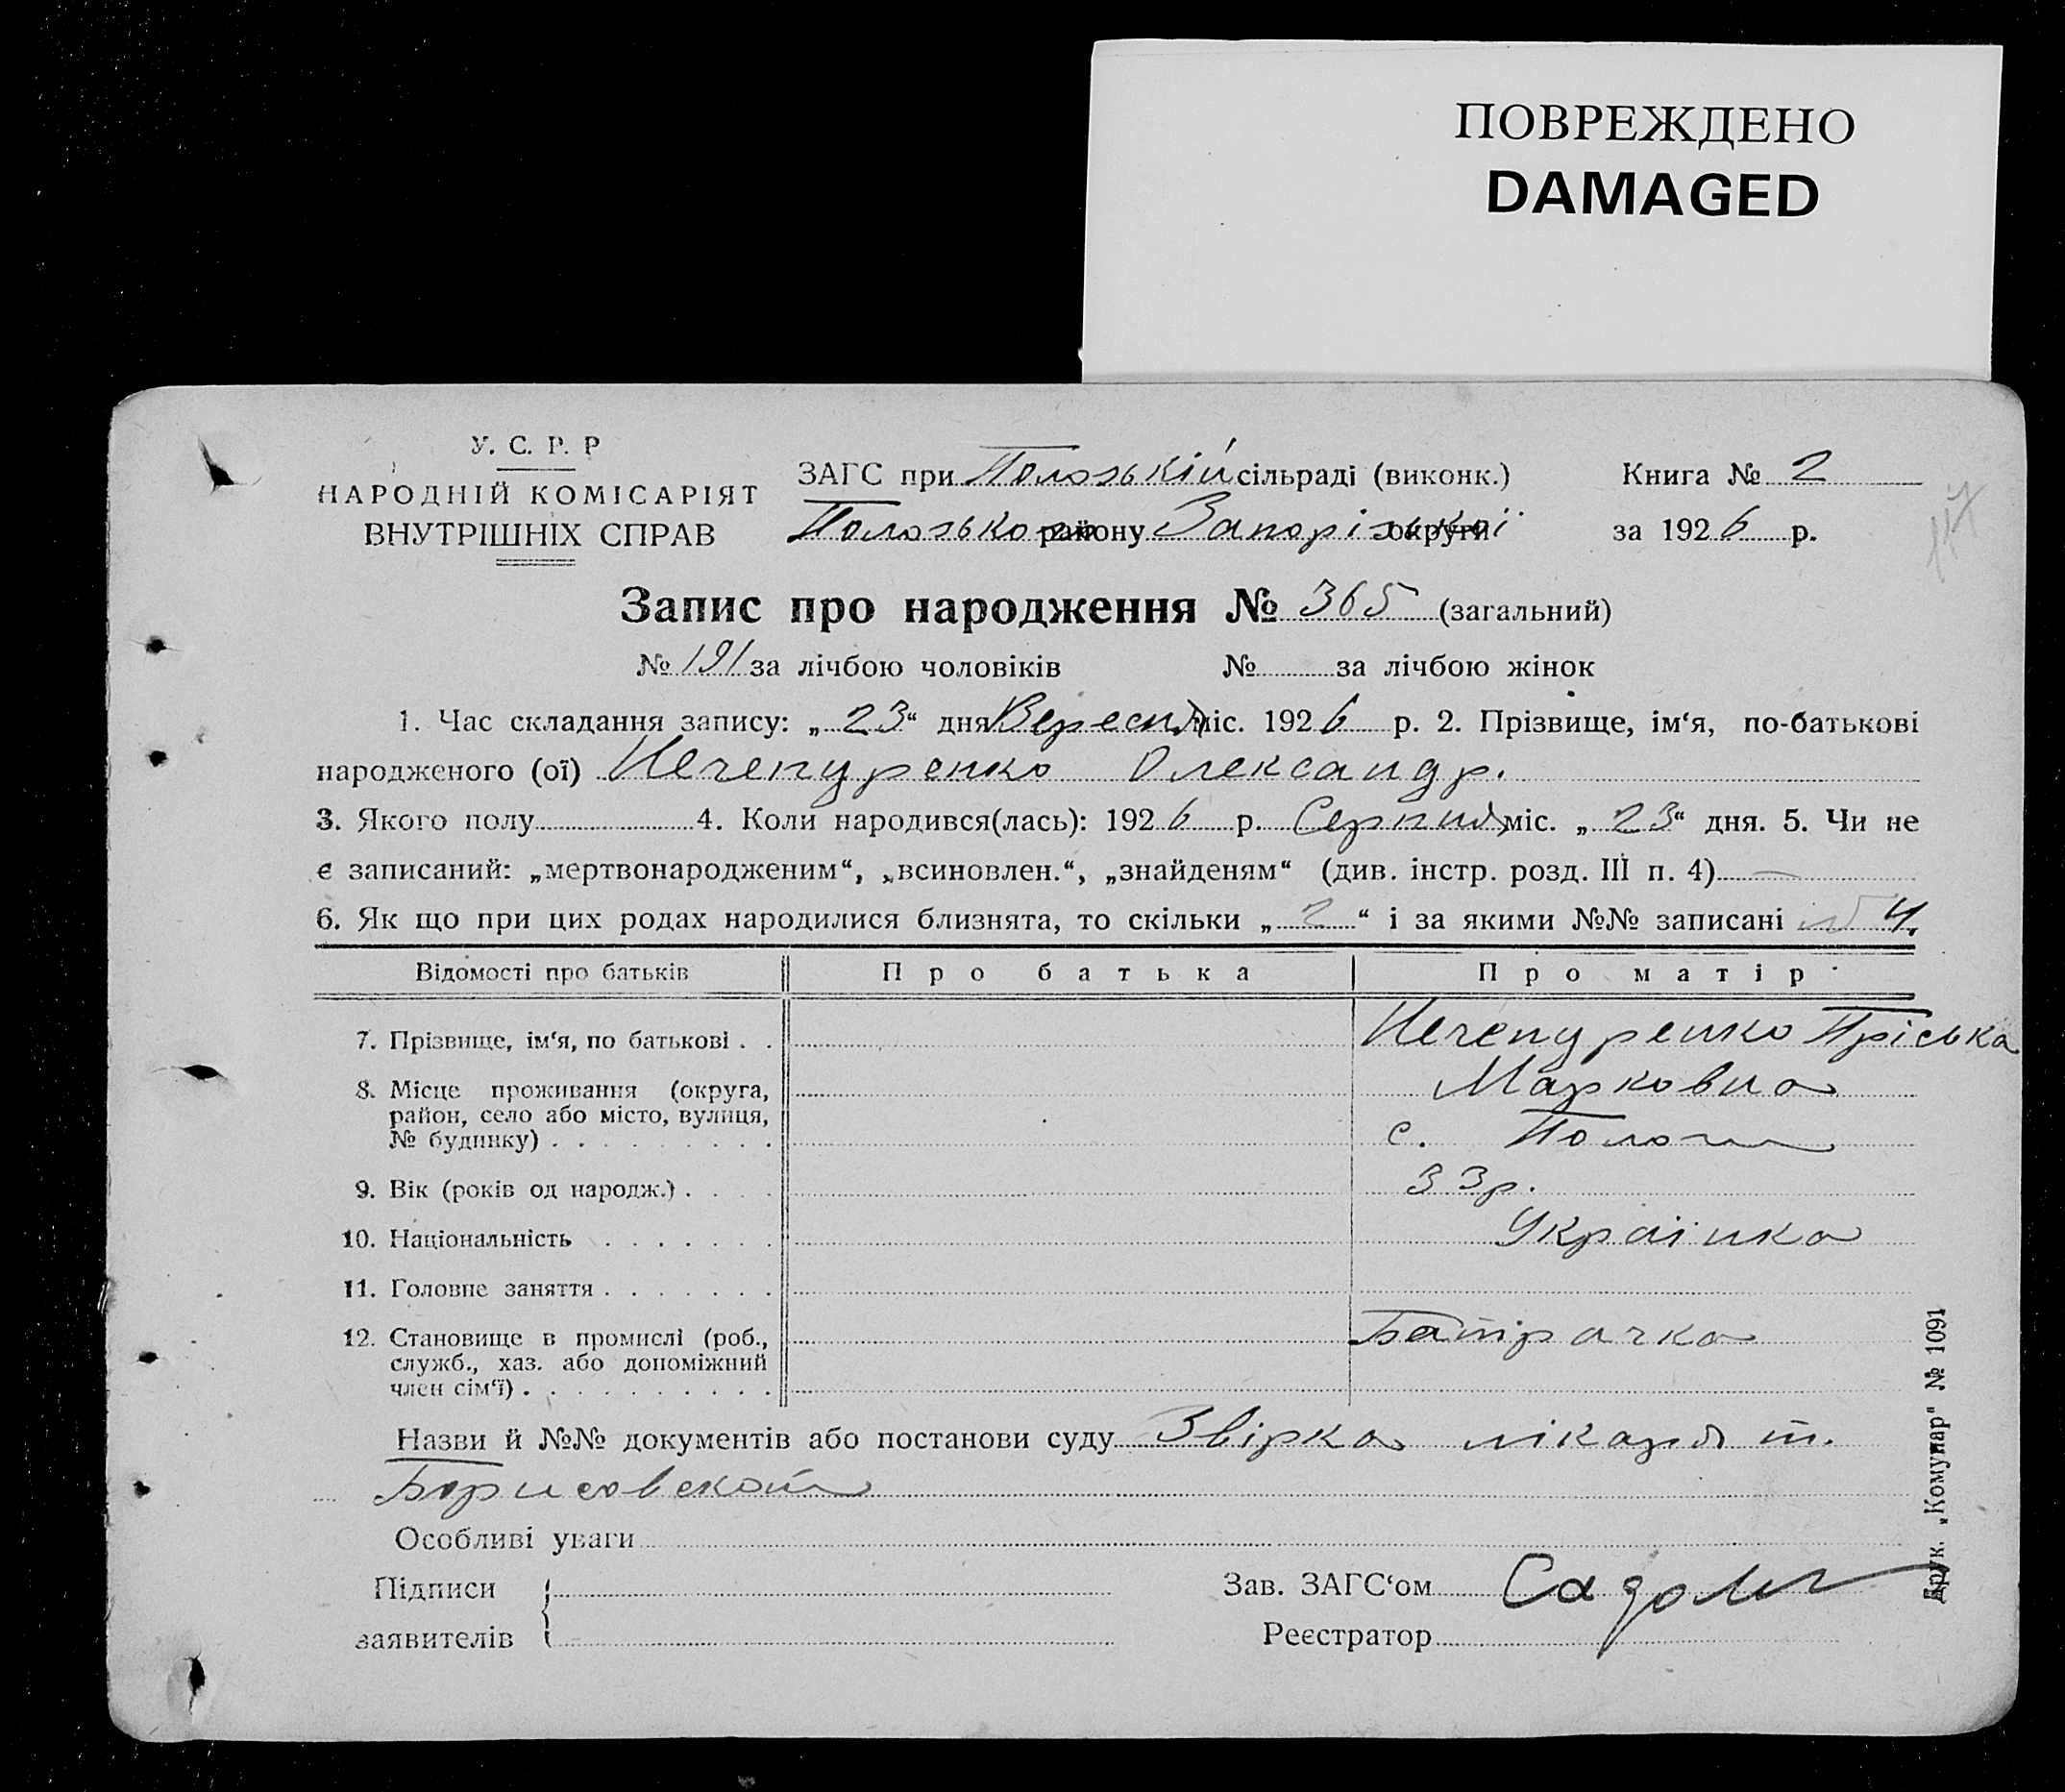 ПОВРЕЖДЕНО
DAMAGED
У. С. Р. Р
НАРОДНІЙ КОМІСАРІЯТ
ВНУТРІШНІХ СПРАВ
ЗАГС при Полозькій сільраді (виконк.)
Полозького району Запорізької округи
Книга № 2
за 1926 р.
117
Запис про народження № 365 (загальний)
№ 191 за лічбою чоловіків № за лічбою жінок
1. Час складання запису: „23“ дня Вересня міс. 1926 р. 2. Прізвище, ім‘я, по-батькові
народженого (ої) Нечепуренко Олександр.
3. Якого полу 4. Коли народився(лась): 1926 р. Серпня міс. „23“ дня. 5. Чи не
є записаний: „мертвонародженим“, „всиновлен.“, „знайденям“ (див. інстр. розд. III п. 4) —
6. Як що при цих родах народилися близнята, то скільки „2“ і за якими №№ записані
Відомості про батьків Про батька Про матір
7. Прізвище, ім‘я, по батькові . . Нечепуренко Пріська
Марковна
8. Місце проживання (округа,
район, село або місто, вулиця,
№ будинку) . . . . . . . . . с. Пологи
9. Вік (років од народж.) . . . . 33 р.
10. Національність . . . . . . . Українка
11. Головне заняття . . . . . . .
12. Становище в промислі (роб.,
служб., хаз. або допоміжний
член сім‘ї) . . . . . . . . . . Батрачка
Назви й №№ документів або постанови суду Звірка лікаря т.
Борисовской
Особливі уваги
Підписи
заявителів
Зав. ЗАГС‘ом
Реєстратор
Друк. „Комунар“ № 1091